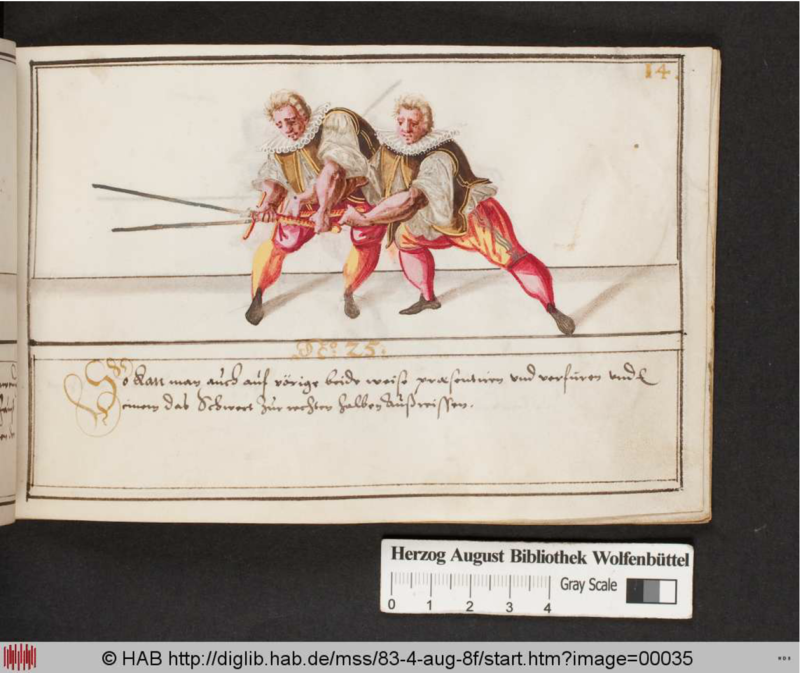 14.
No. 25.
So kan man auch auf vörige beide weise præsentiren vnd verfüren vnd
einem das Schwert zur rechten halben außreissen.
Herzog August Bibliothek Wolfenbüttel
Gray Scale
0 1 2 3 4
© HAB http://diglib.hab.de/mss/83-4-aug-8f/start.htm?image=00035